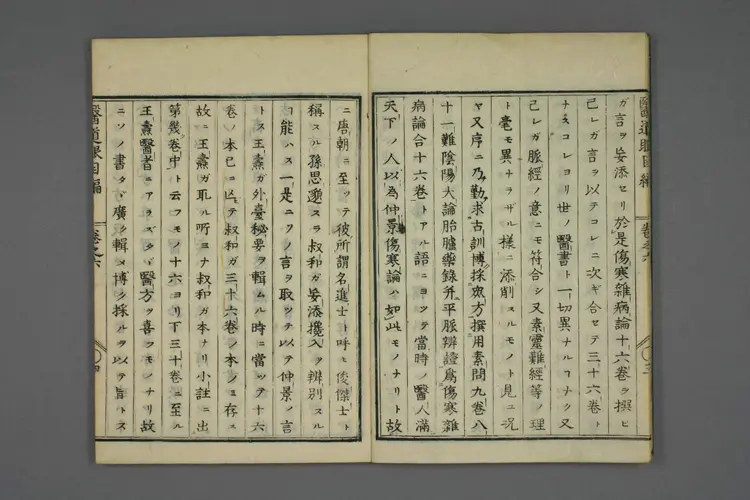 醫道眼目編 卷之六
ガ言ヲ妄添セリ於是傷寒雜病論十六卷ヲ撰ヒ
己レガ言ヲ以テコレニ次ギ合セテ三十六卷ト
ナスコレヨリ世ノ醫書ト一切異ナルヿナク又
己レガ脈經ノ意ニモ符合シ又素靈難經等ノ理
ト毫モ異ナラザル樣ニ添削スルモノト見ユ况
ヤ又序ニ乃勤求古訓博採衆方撰用素問九卷八
十一難陰陽大論胎臚藥錄幷平脈辨證爲傷寒雜
病論合十六卷トアル語ニヨツテ當時ノ醫人滿
天下ノ人以為仲景傷寒論ハ如此モノナリト故
ニ唐朝ニ至ツテ彼所謂名進士ト呼ヒ俊傑士ト
稱スル孫思邈スラ叔和ガ妄添攙入ヲ辨別スル
ヿ能ハス一是ニソノ言ヲ取ツテ以テ仲景ノ言
トス王燾ガ外臺秘要ヲ輯ムル時ニ當ツテ十六
卷ノ本已ニ亾テ叔和ガ三十六卷ノ本ノミ存ス
故ニ王燾ガ取ル所ヨナ叔和ガ本ナリ小註ニ出
第幾卷中ト云フモノ十六ヨリ下三十卷ニ至ル
王燾醫者ニアラズタヾ醫方ヲ喜フモノナリ故
ニソノ書タヾ廣ク輯メ博ク採ルヲ以テ旨トス
醫道眼目編 卷之六 四